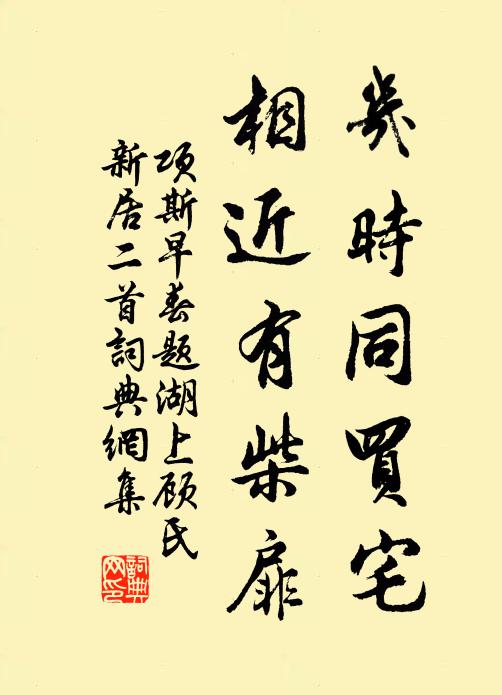 幾時同買宅
相近有柴扉
项斯早春题湖上顾氏
新居二首詞典網集
詞典
网印